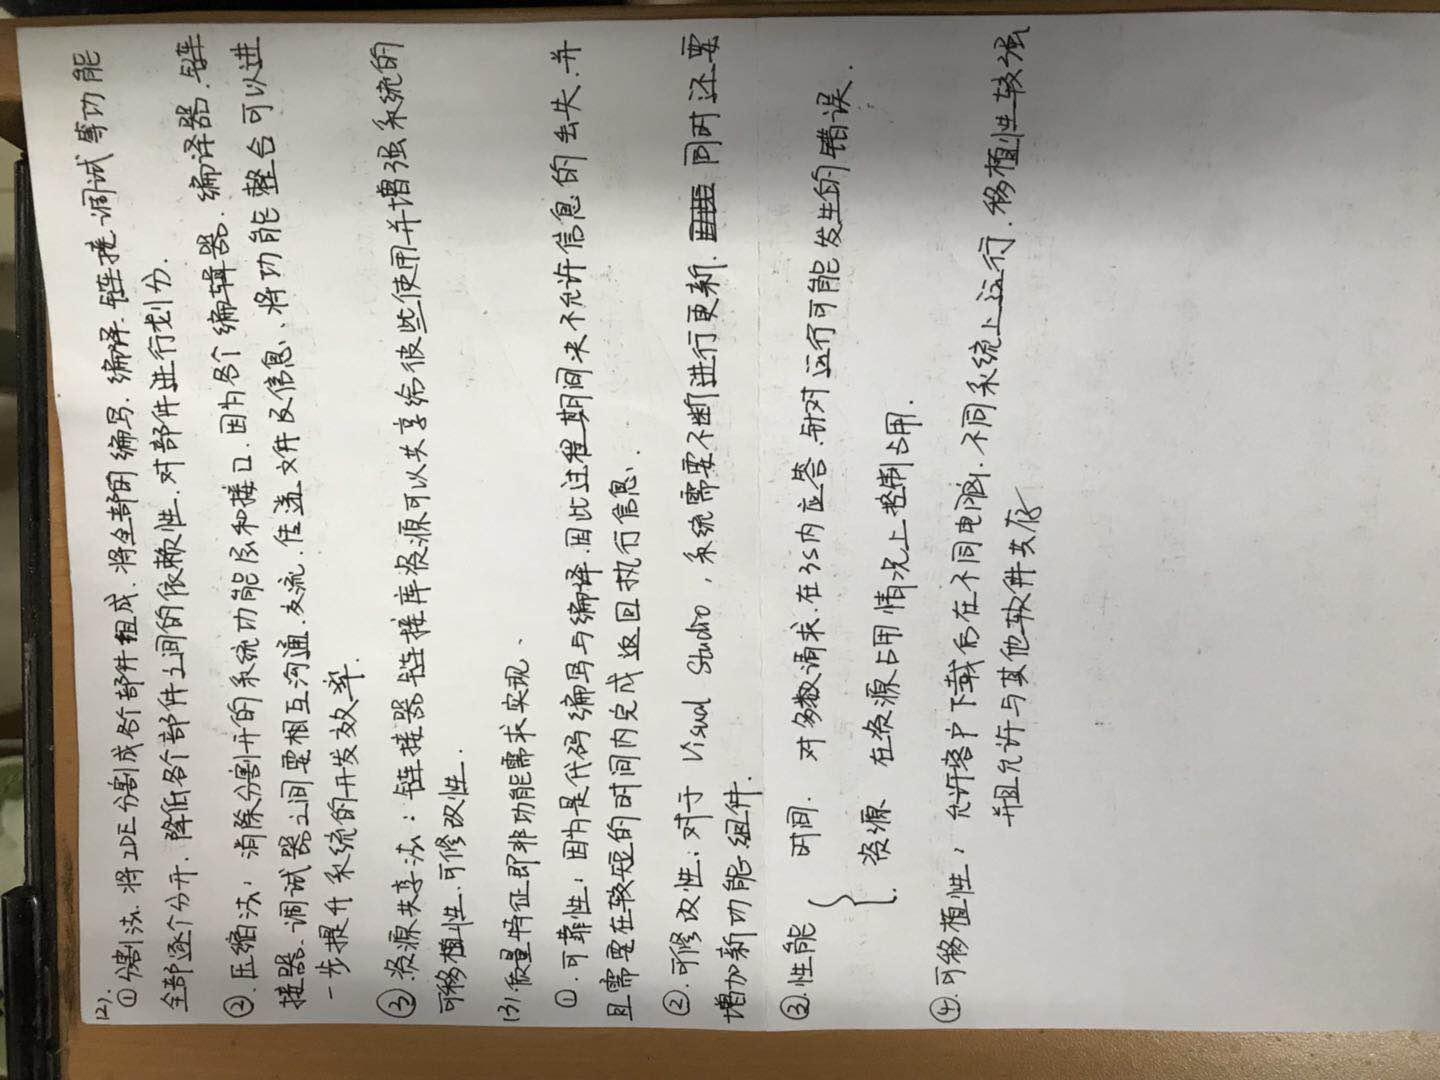 (2).
①分割法.将IDE分割成各部件组成.将全部的编写.编译.链接.调试等功能
全部逐个分开.降低各个部件之间的依赖性.对部件进行划分.
②.压缩法:消除分割开的系统功能层和接口.因为各个编辑器.编译器.链
接器.调试器之间要相互沟通.交流.传递文件及信息、将功能整合可以进
一步提升系统的开发效率.
③.资源共享法:链接器链接库资源可以共享给彼些使用并增强系统的
可移植性.可修改性.
(3).质量特征即非功能需求实现、
①.可靠性:因为是代码编写与编译.因此过程期间决不允许信息的丢失.并
且需要在较短的时间内完成返回执行信息.
②.可修改性:对于 Visual Studio,系统需要不断进行更新.同时还要
增加新功能组件.
③.性能 时间. 对多数请求.在3s内应答.针对运行可能发生的错误.
资源 在资源占用情况上控制占用.
④.可移植性:允许客户下载后在不同电脑.不同系统上运行.移植性较强
并且允许与其他软件共存